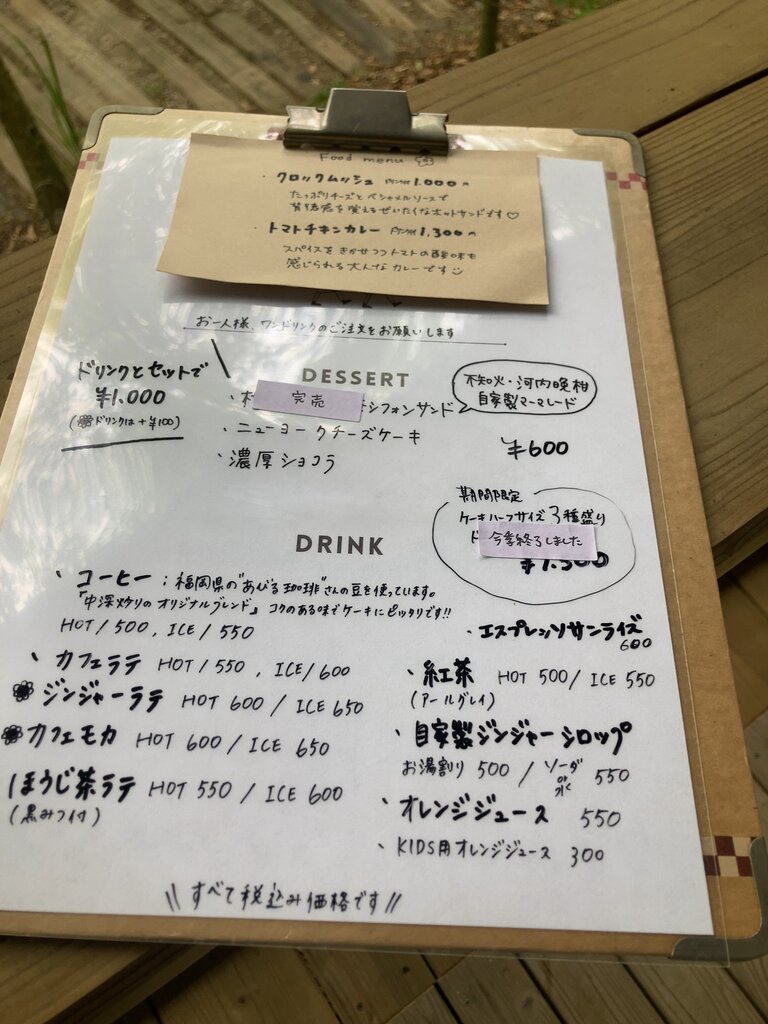 Food menu
・クロックムッシュ ドリンク付 1,000円
たっぷりチーズとベシャメルソースで
背徳感を覚えるぜいたくなホットサンドです♡
・トマトチキンカレー ドリンク付 1,300円
スパイスをきかせつつトマトの酸味も
感じられる大人なカレーです
お一人様、ワンドリンクのご注文をお願いします
ドリンクとセットで
¥1,000
(ドリンクは+¥100)
DESSERT
・ 完売 シフォンサンド
不知火・河内晩柑
自家製マーマレード
・ニューヨークチーズケーキ
・濃厚ショコラ
¥600
期間限定
ケーキハーフサイズ3種盛り
今季終了しました
¥1,300
DRINK
・コーヒー：福岡県の"あびる珈琲"さんの豆を使っています。
「中深炒りのオリジナルブレンド」コクのある味でケーキにピッタリです!!
HOT/500, ICE/550
・カフェラテ HOT/550, ICE/600
ジンジャーラテ HOT 600/ICE 650
カフェモカ HOT 600/ICE 650
ほうじ茶ラテ HOT 550/ICE 600
(黒みつ付)
・エスプレッソサンライズ
600
・紅茶 HOT 500/ICE 550
(アールグレイ)
・自家製ジンジャーシロップ
お湯割り 500/ソーダor水 550
・オレンジジュース 550
・KIDS用オレンジジュース 300
\\すべて税込み価格です//